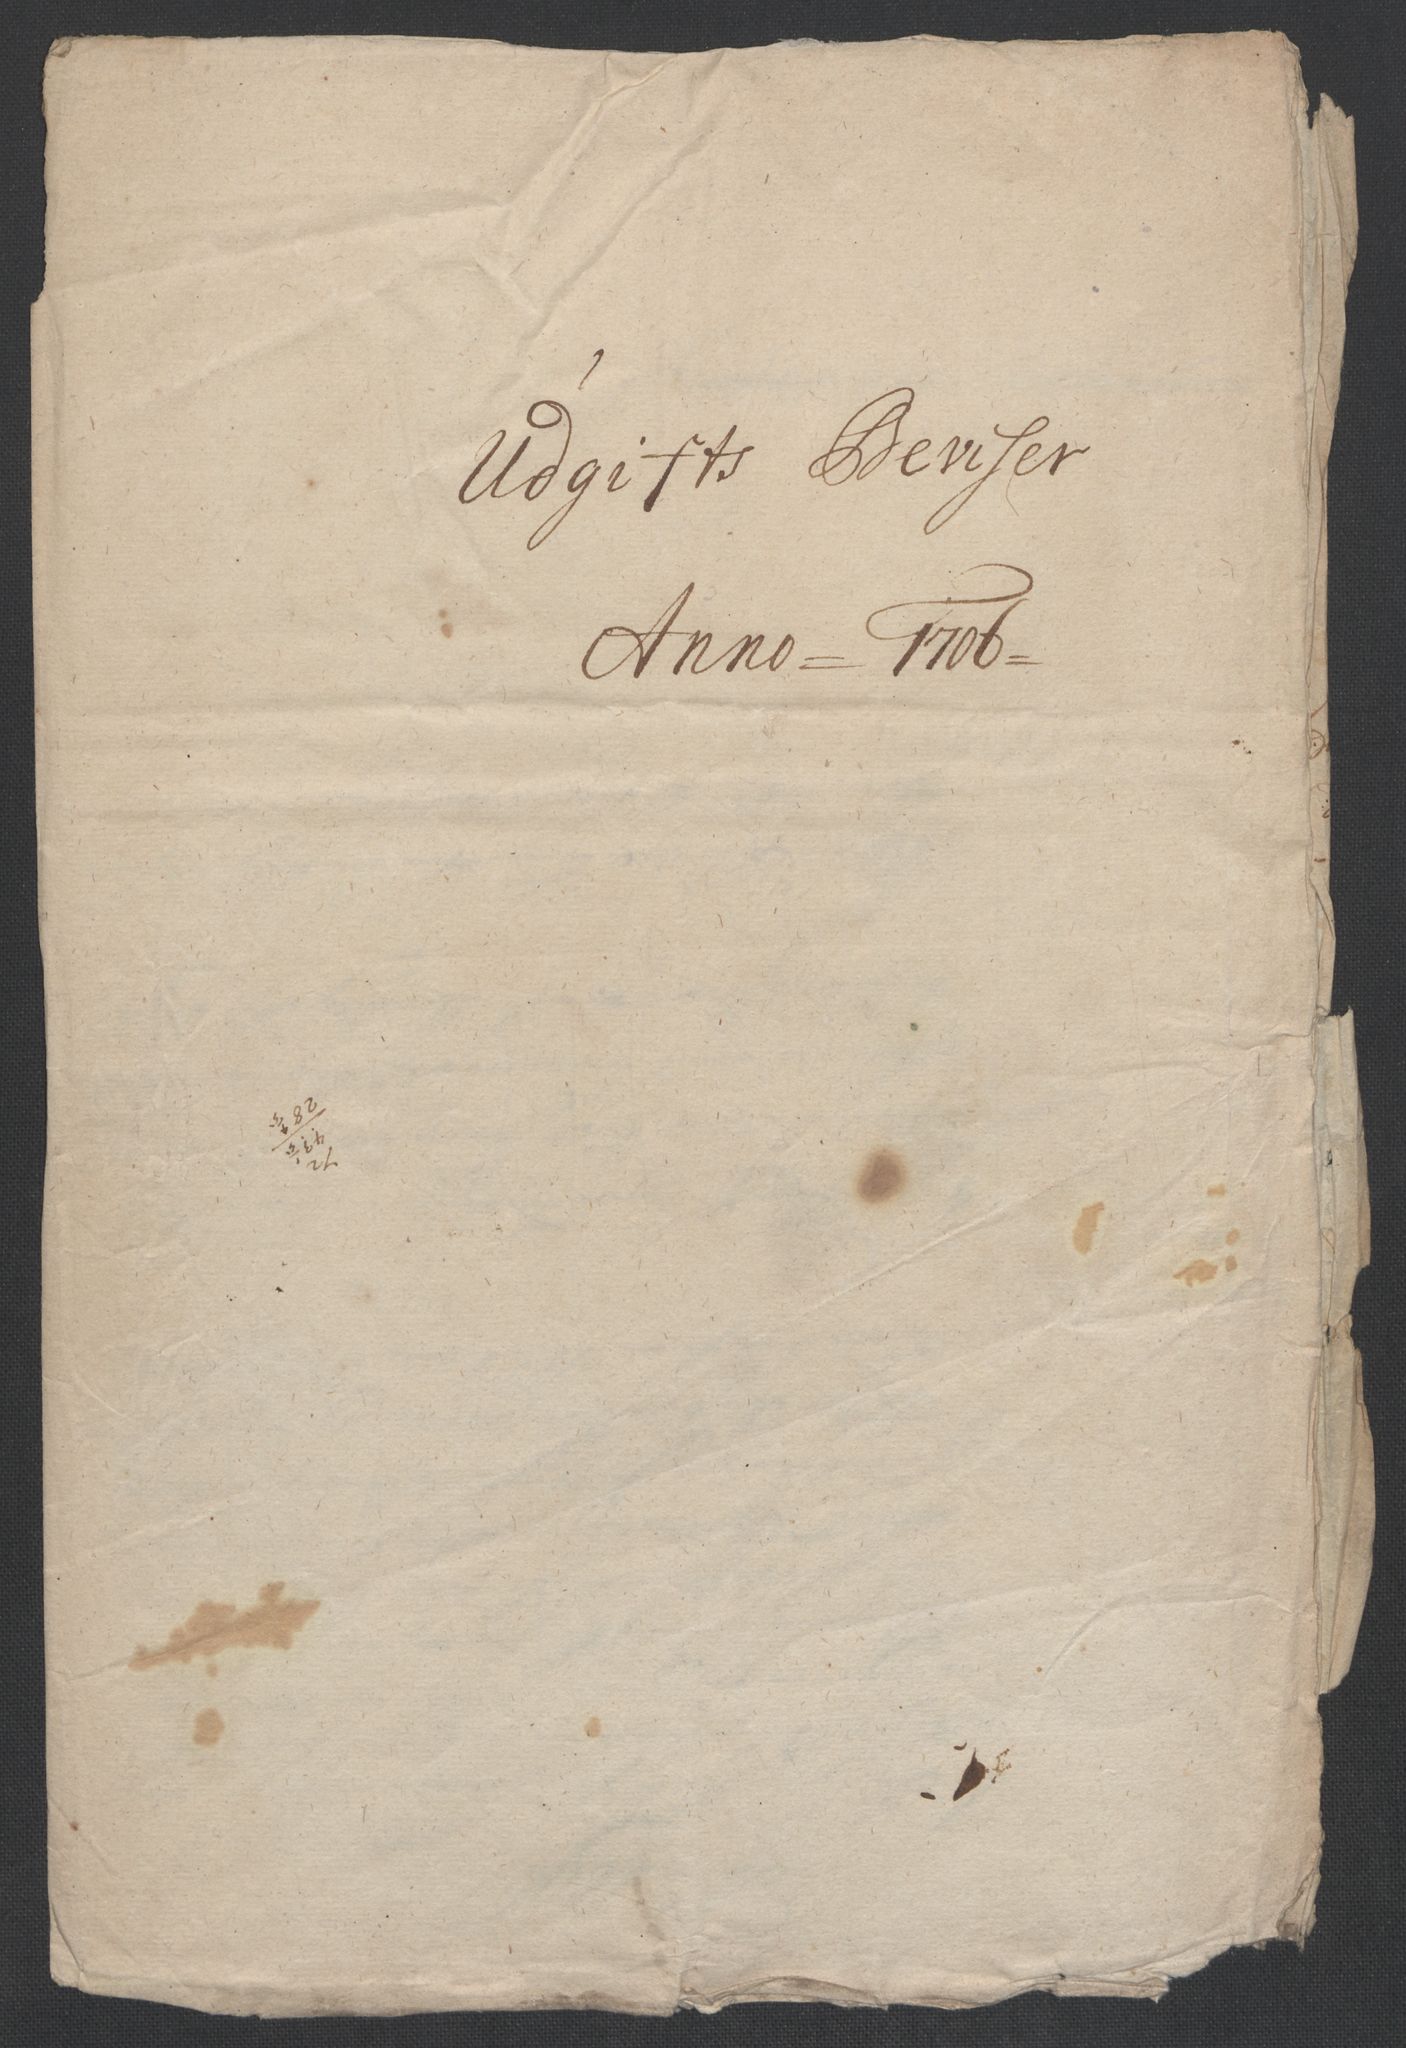 Udgifts Beviser
Anno = 1706 =
72